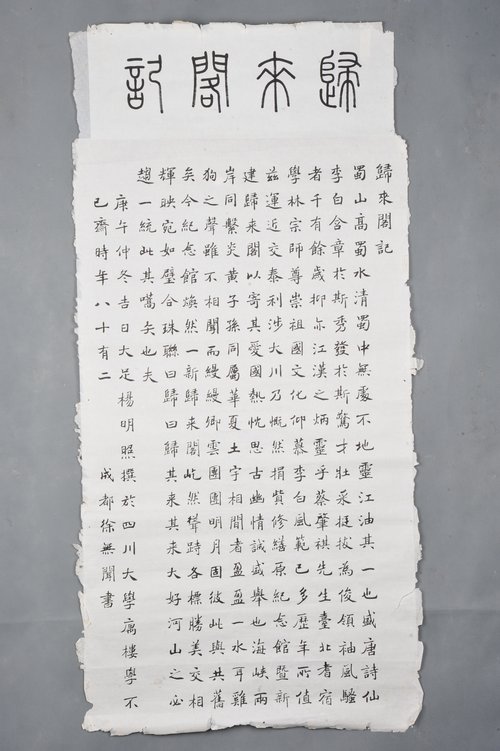 歸來閣記
歸來閣記
蜀山高蜀水清蜀中無處不地靈江油其一也盛唐詩仙
李白含章於斯秀發於斯驚才壯采挺拔為俊領袖風騷
者千有餘歲抑亦江漢之炳靈乎蔡肇祺先生臺北耆宿
學林宗師尊崇祖國文化仰慕李白風範已多歷年所值
茲運近交泰利涉大川乃慨然捐貲修繕原紀念館暨新
建歸來閣以寄其愛國熱忱思古幽情誠盛舉也海峽兩
岸同繫炎黃子孫同屬華夏土宇相間者盈盈一水耳雞
狗之聲雖不相聞而縵縵卿雲團團明月固彼此與共舊
矣今紀念館煥然一新歸來閣屹然聳跱各標勝美交相
輝映宛如璧合珠聯曰歸曰歸其來其來大好河山之必
趨一統此其嚆矢也夫
庚午仲冬吉日大足楊明照撰於四川大學寓樓學不
已齋時年八十有二 成都徐無聞書